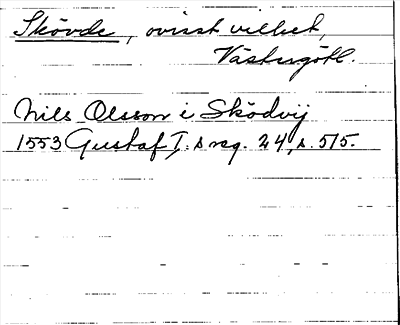 Skövde, ovisst vilket,
Västergötl.
Nils Olsson i Sködvij
1553 Gustaf I:s reg. 24, s. 515.